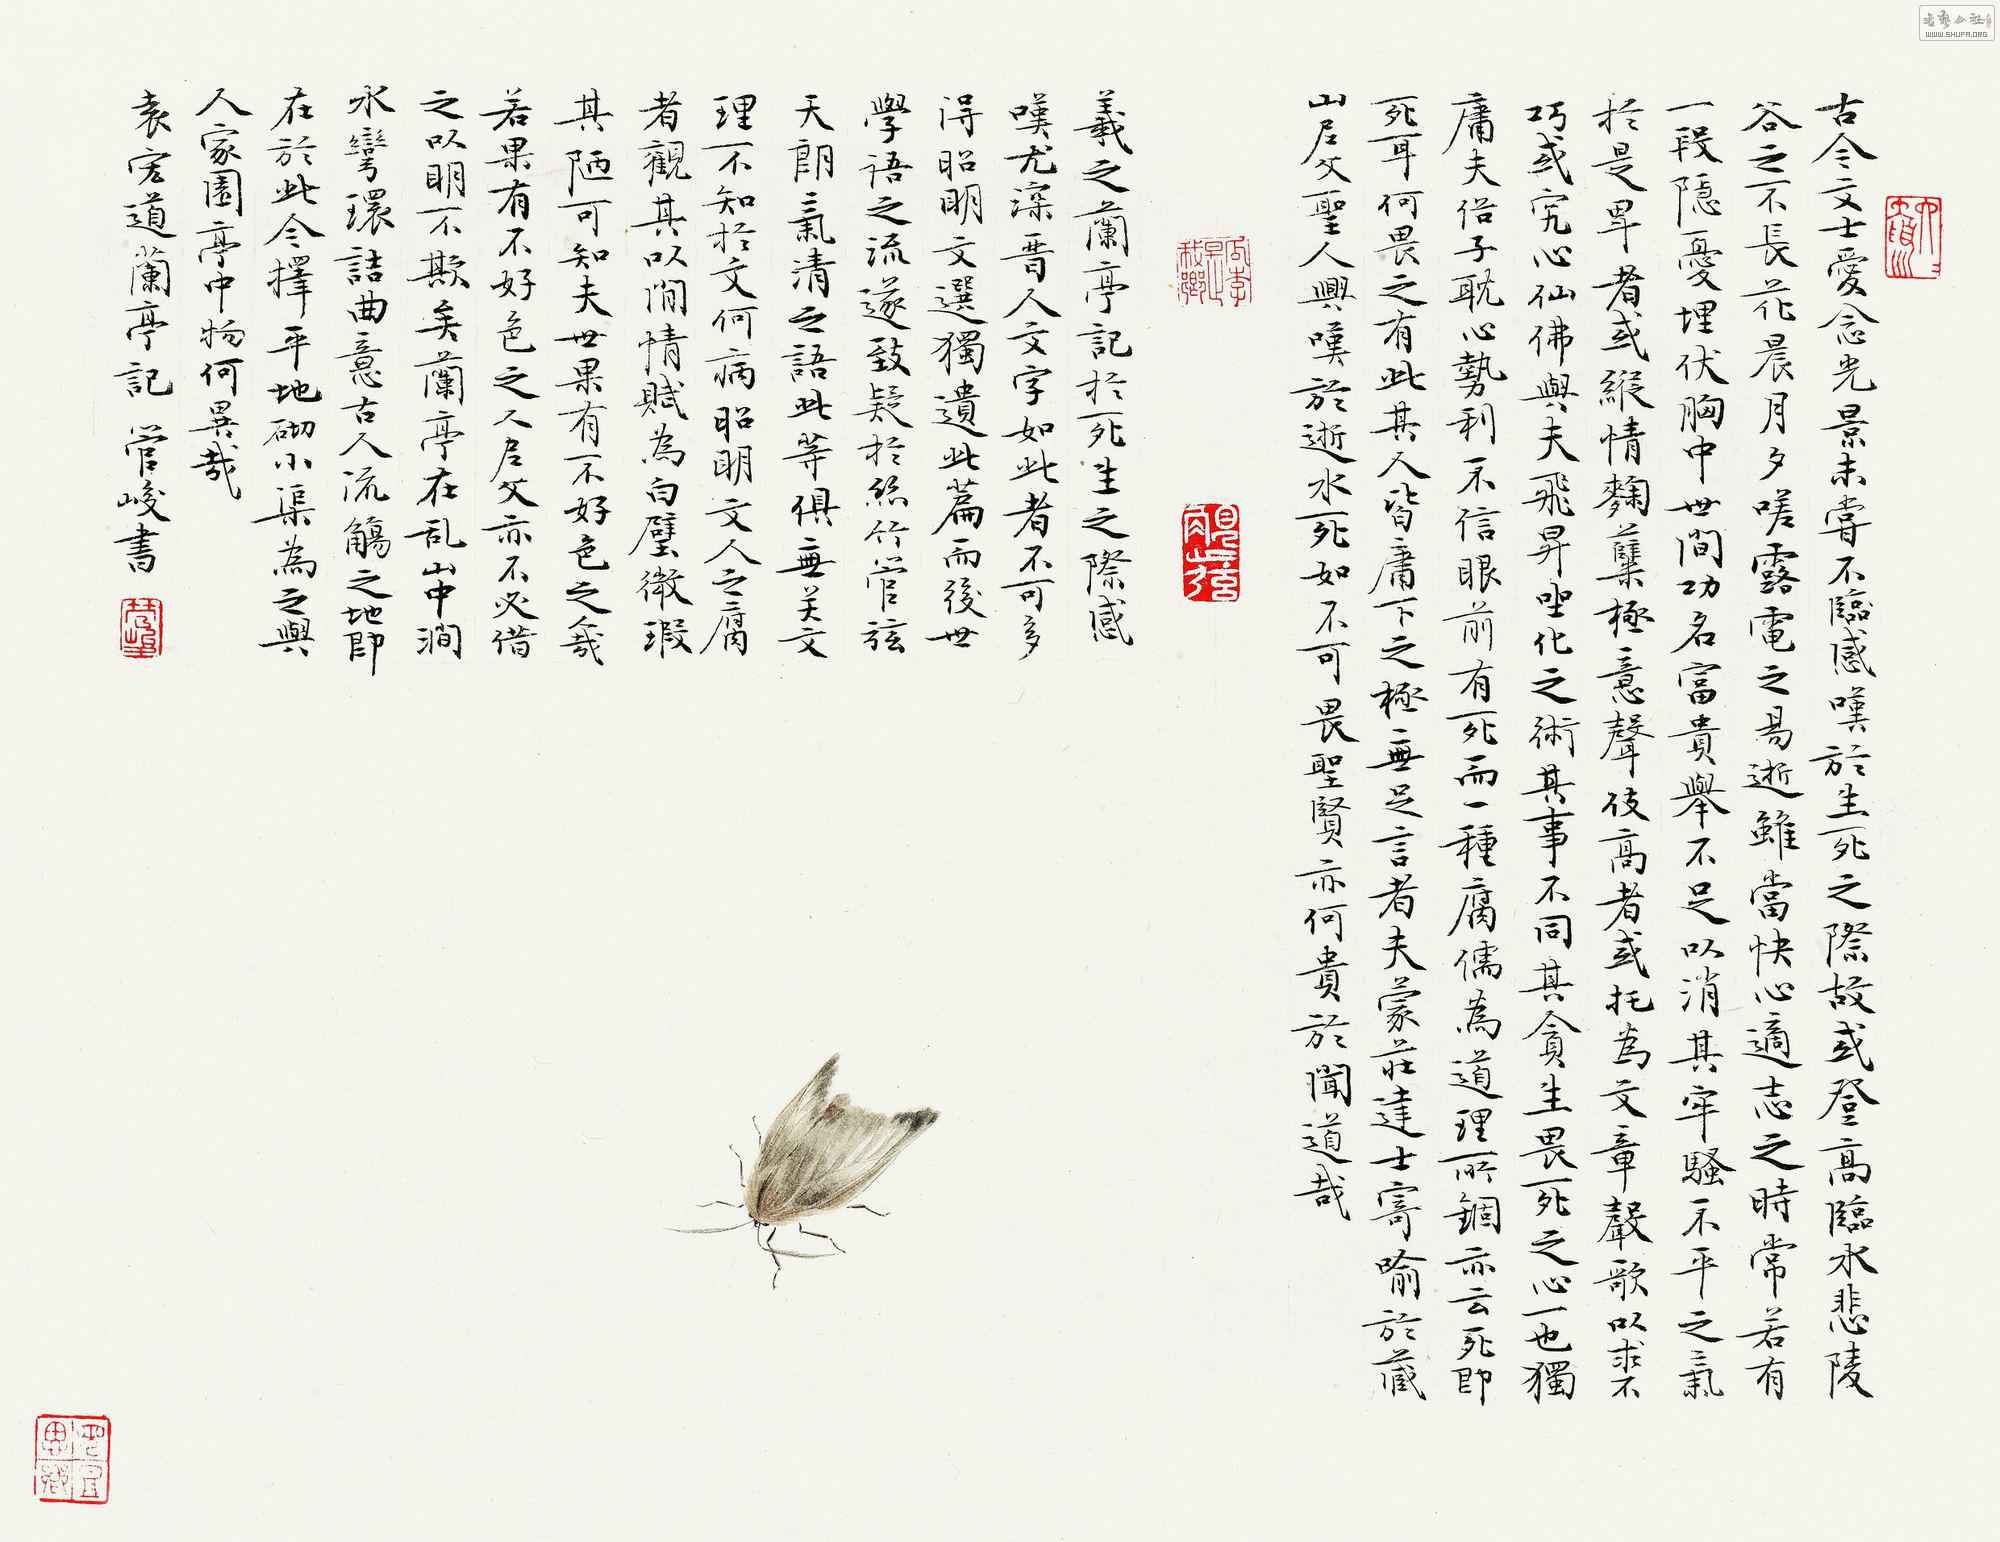 古今文士愛念光景未嘗不臨感嘆於生死之際故或登高臨水悲陵
谷之不長花晨月夕嗟露電之易逝雖當快心適志之時常若有
一段隱憂埋伏胸中世間功名富貴舉不足以消其牢騷不平之氣
於是卑者或縱情麴糱極意聲伎高者或托為文章聲歌以求不
朽或究心仙佛與夫飛昇坐化之術其事不同其貪生畏死之心一也獨
庸夫俗子耽心勢利不信眼前有死而一種腐儒為道理所錮亦云死即
死耳何畏之有此其人皆庸下之極無足言者夫蒙莊達士寄喻於藏
山尼父聖人興嘆於逝水死如不可畏聖賢亦何貴於聞道哉
羲之蘭亭記於死生之際感
嘆尤深晉人文字如此者不可多
得昭明文選獨遺此篇而後世
學語之流遂致疑於絲竹管弦
天朗氣清之語此等俱無关文
理不知於文何病昭明文人之腐
者觀其以閒情賦為白璧微瑕
其陋可知夫世果有不好色之人哉
若果有不好色之人尼父亦不必借
之以明不欺矣蘭亭在乱山中澗
水彎環詰曲意古人流觴之地即
在於此今擇平地砌小渠為之與
人家園亭中物何異哉
袁宏道蘭亭記 管峻書
書藝公社
WWW.SHUFA.ORG